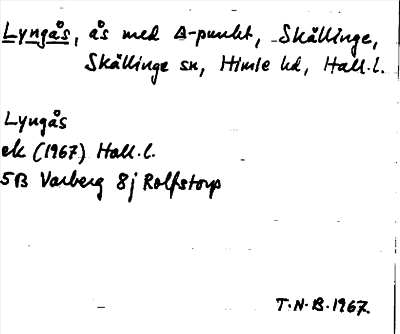 Lyngås, ås med Δ-punkt, Skällinge,
Skällinge sn, Himle hd, Hall. l.
Lyngås
ek (1967) Hall. l.
5B Varberg 8j Rolfstorp
T.N.B. 1967.